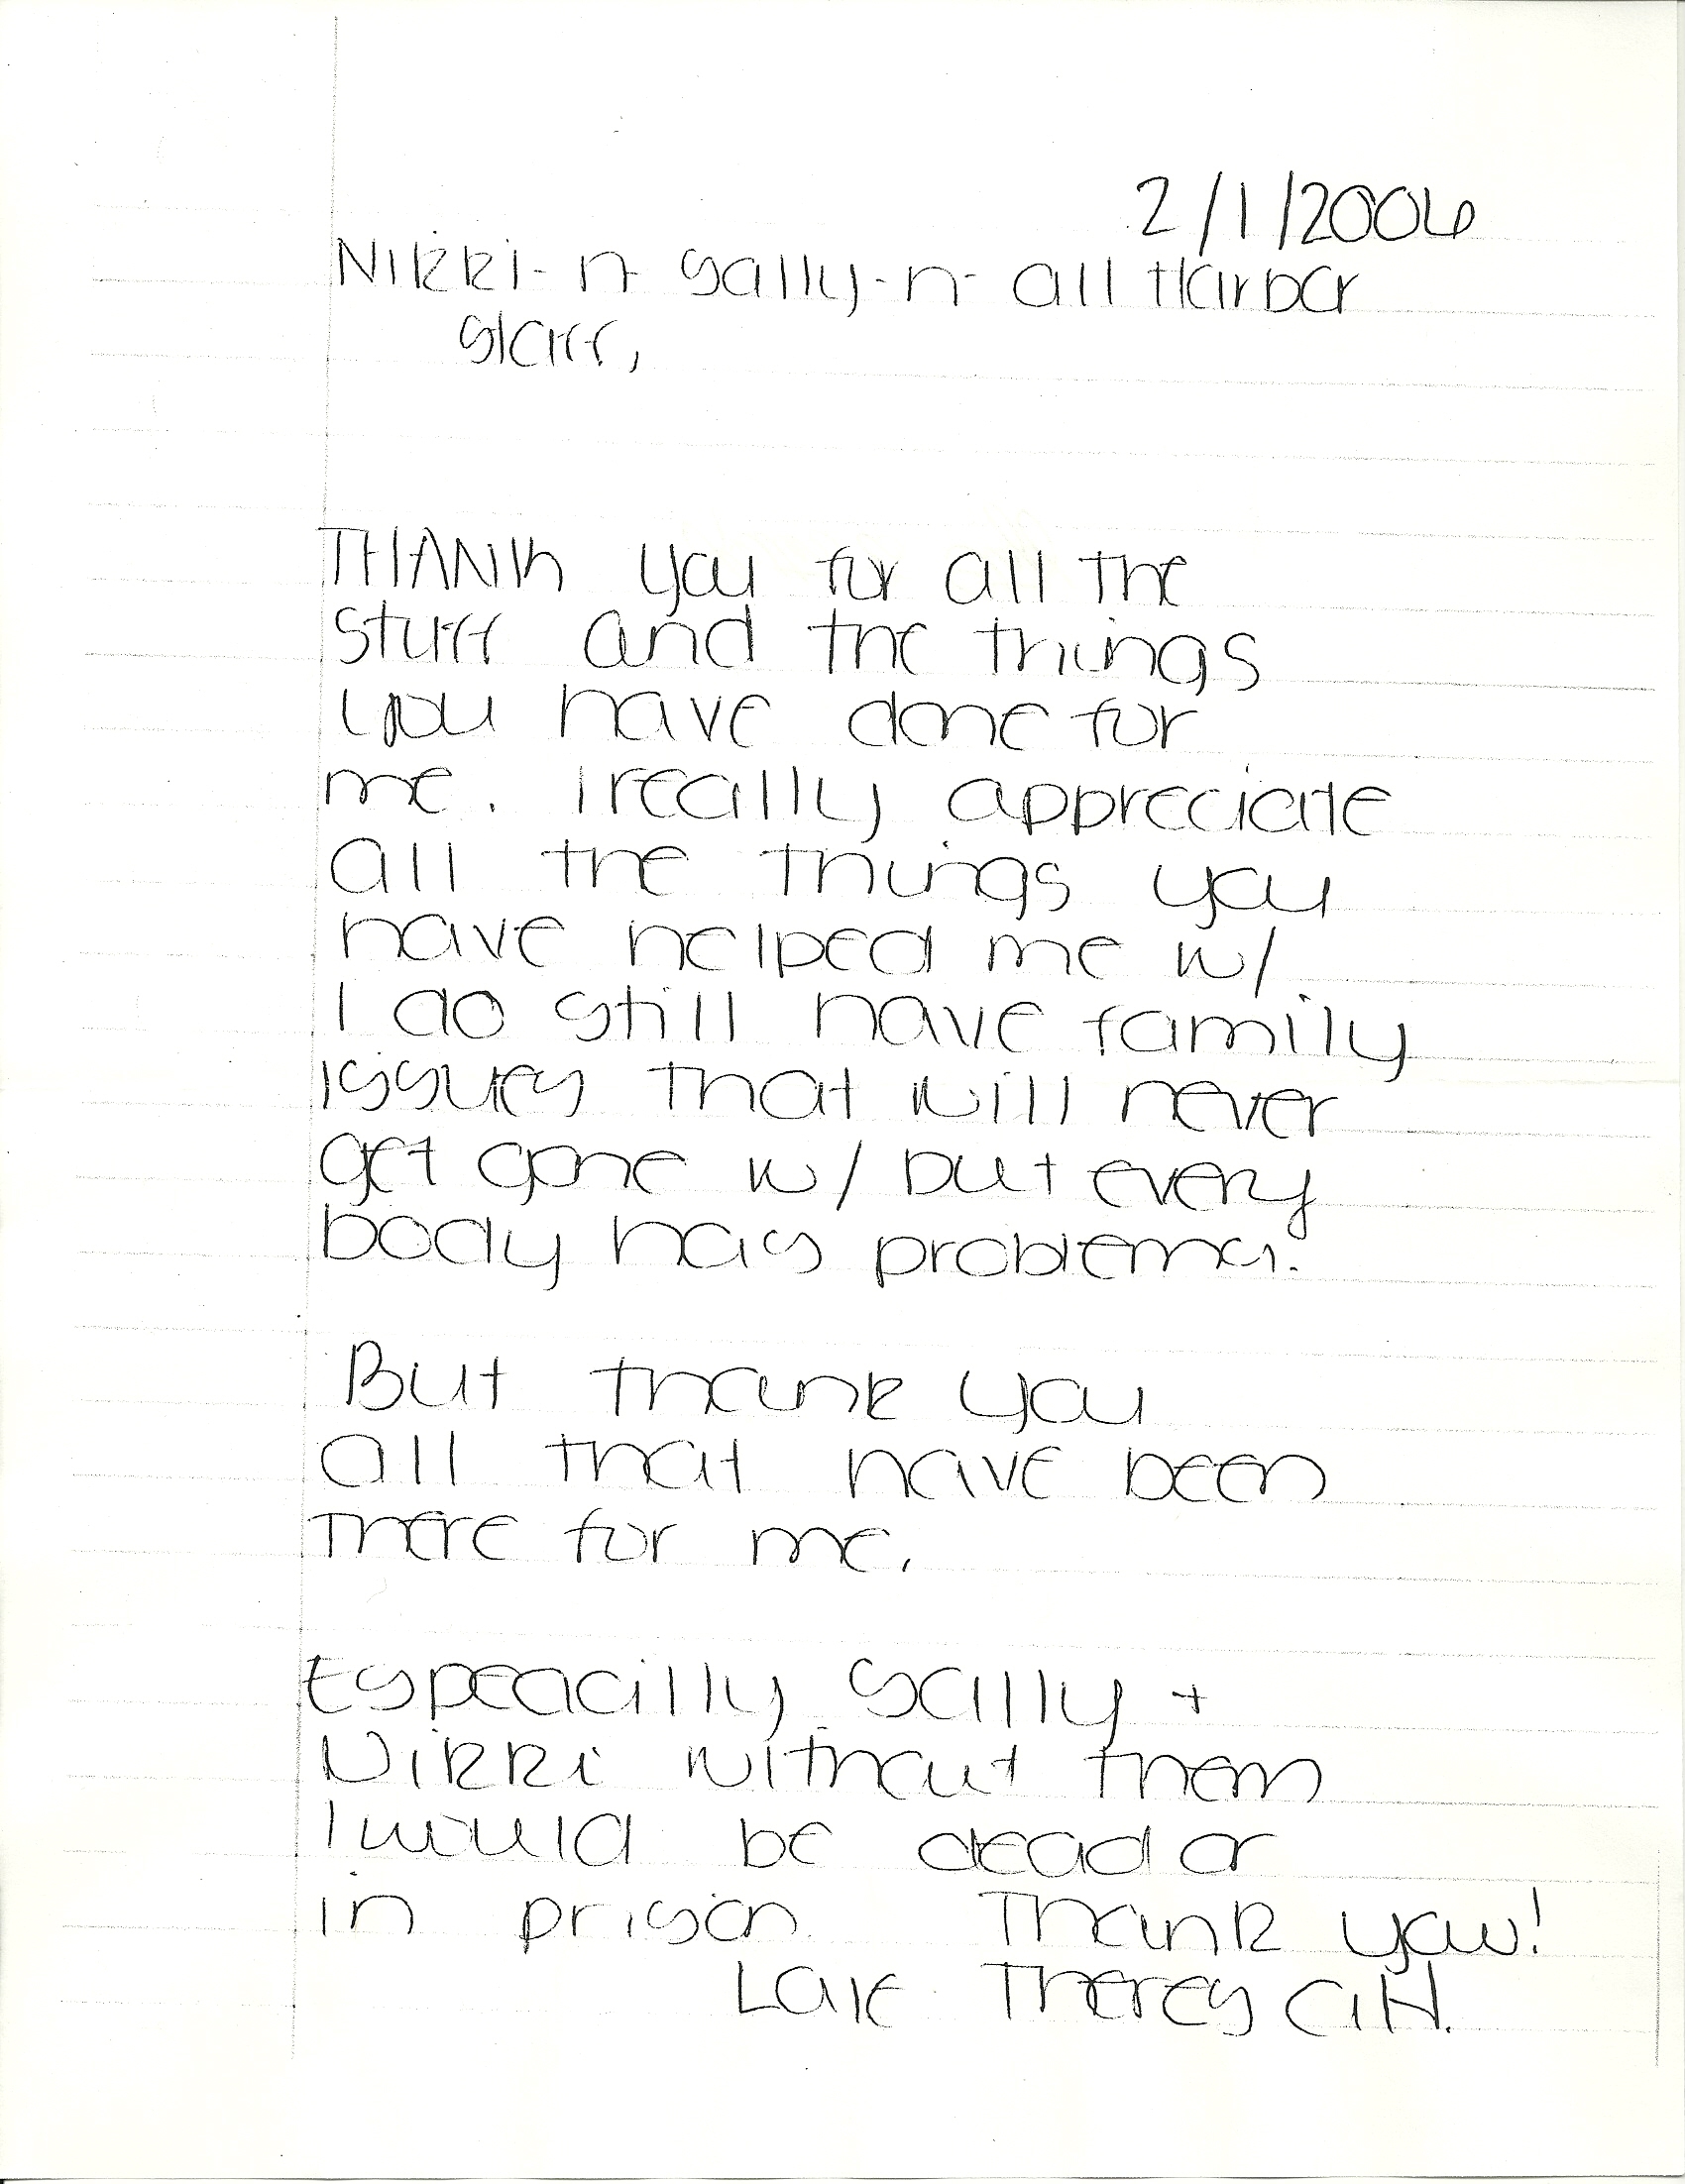 2/1/2006
Nikki-n-Sally-n-all Harbor
Staff,
THANK you for all the
stuff and the things
you have done for
me. I really appreciate
all the things you
have helped me w/
I do still have family
issues that will never
get gone w/ but every
body has problems.
But thank you
all that have been
there for me.
Espeacilly Sally +
Nikki without them
I would be dead or
in prison Thank you!
Love Theresa H.